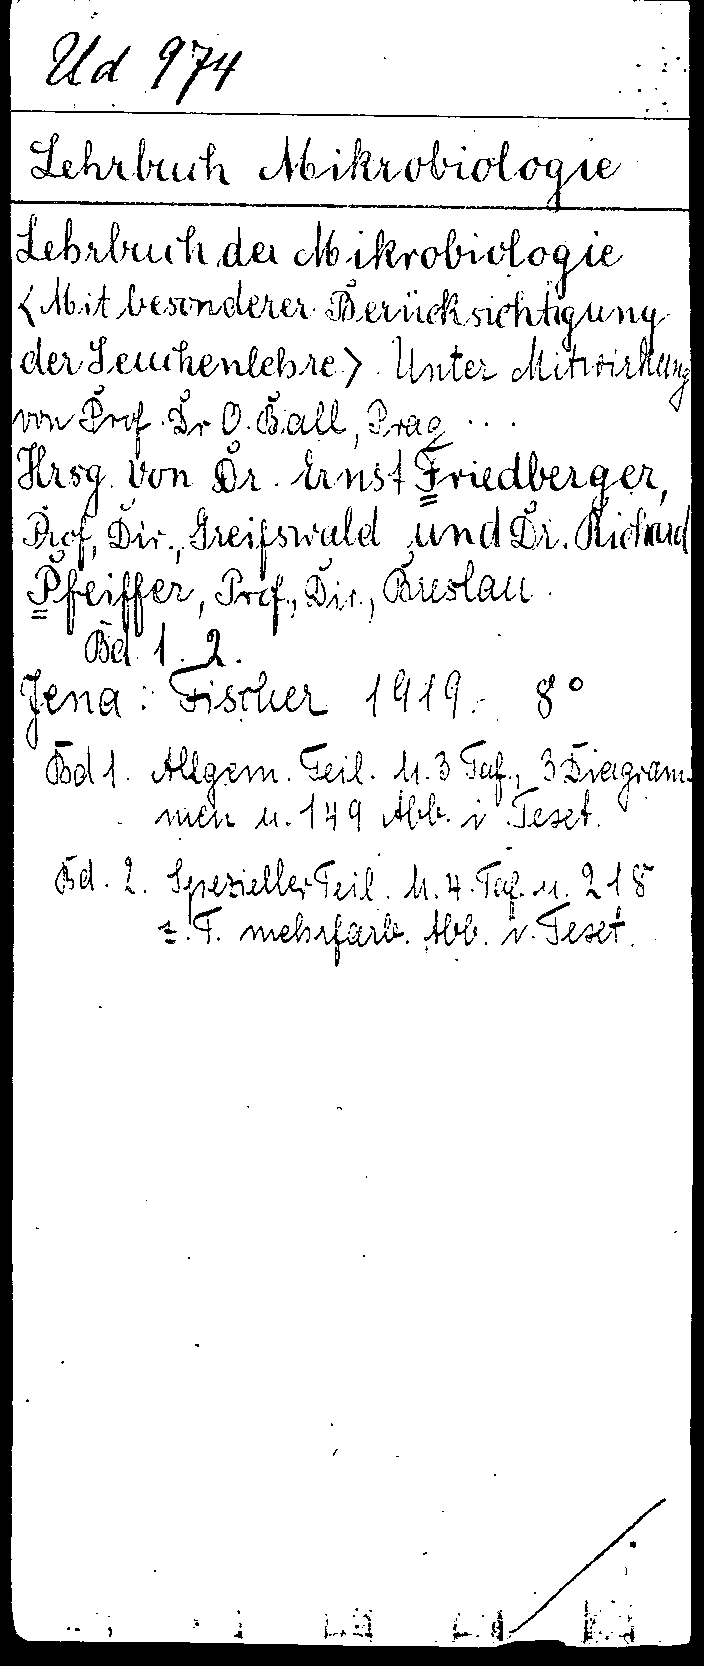 Ud 974
Lehrbuch Mikrobiologie
Lehrbuch der Mikrobiologie
<Mit besonderer Berücksichtigung
der Seuchenlehre>. Unter Mitwirkung
von Prof. Dr O. Bail, Prag ...
Hrsg. von Dr. Ernst Friedberger,
Prof., Dir., Greifswald und Dr. Richard
Pfeiffer, Prof., Dir., Breslau.
Bd. 1. 2.
Jena: Fischer 1919. 8°
Bd 1. Allgem. Teil. M. 3 Taf., 3 Diagram-
men u. 149 Abb. i. Text.
Bd. 2. Spezieller Teil. M. 4. Taf. u. 218
z. T. mehrfarb. Abb. i. Text.